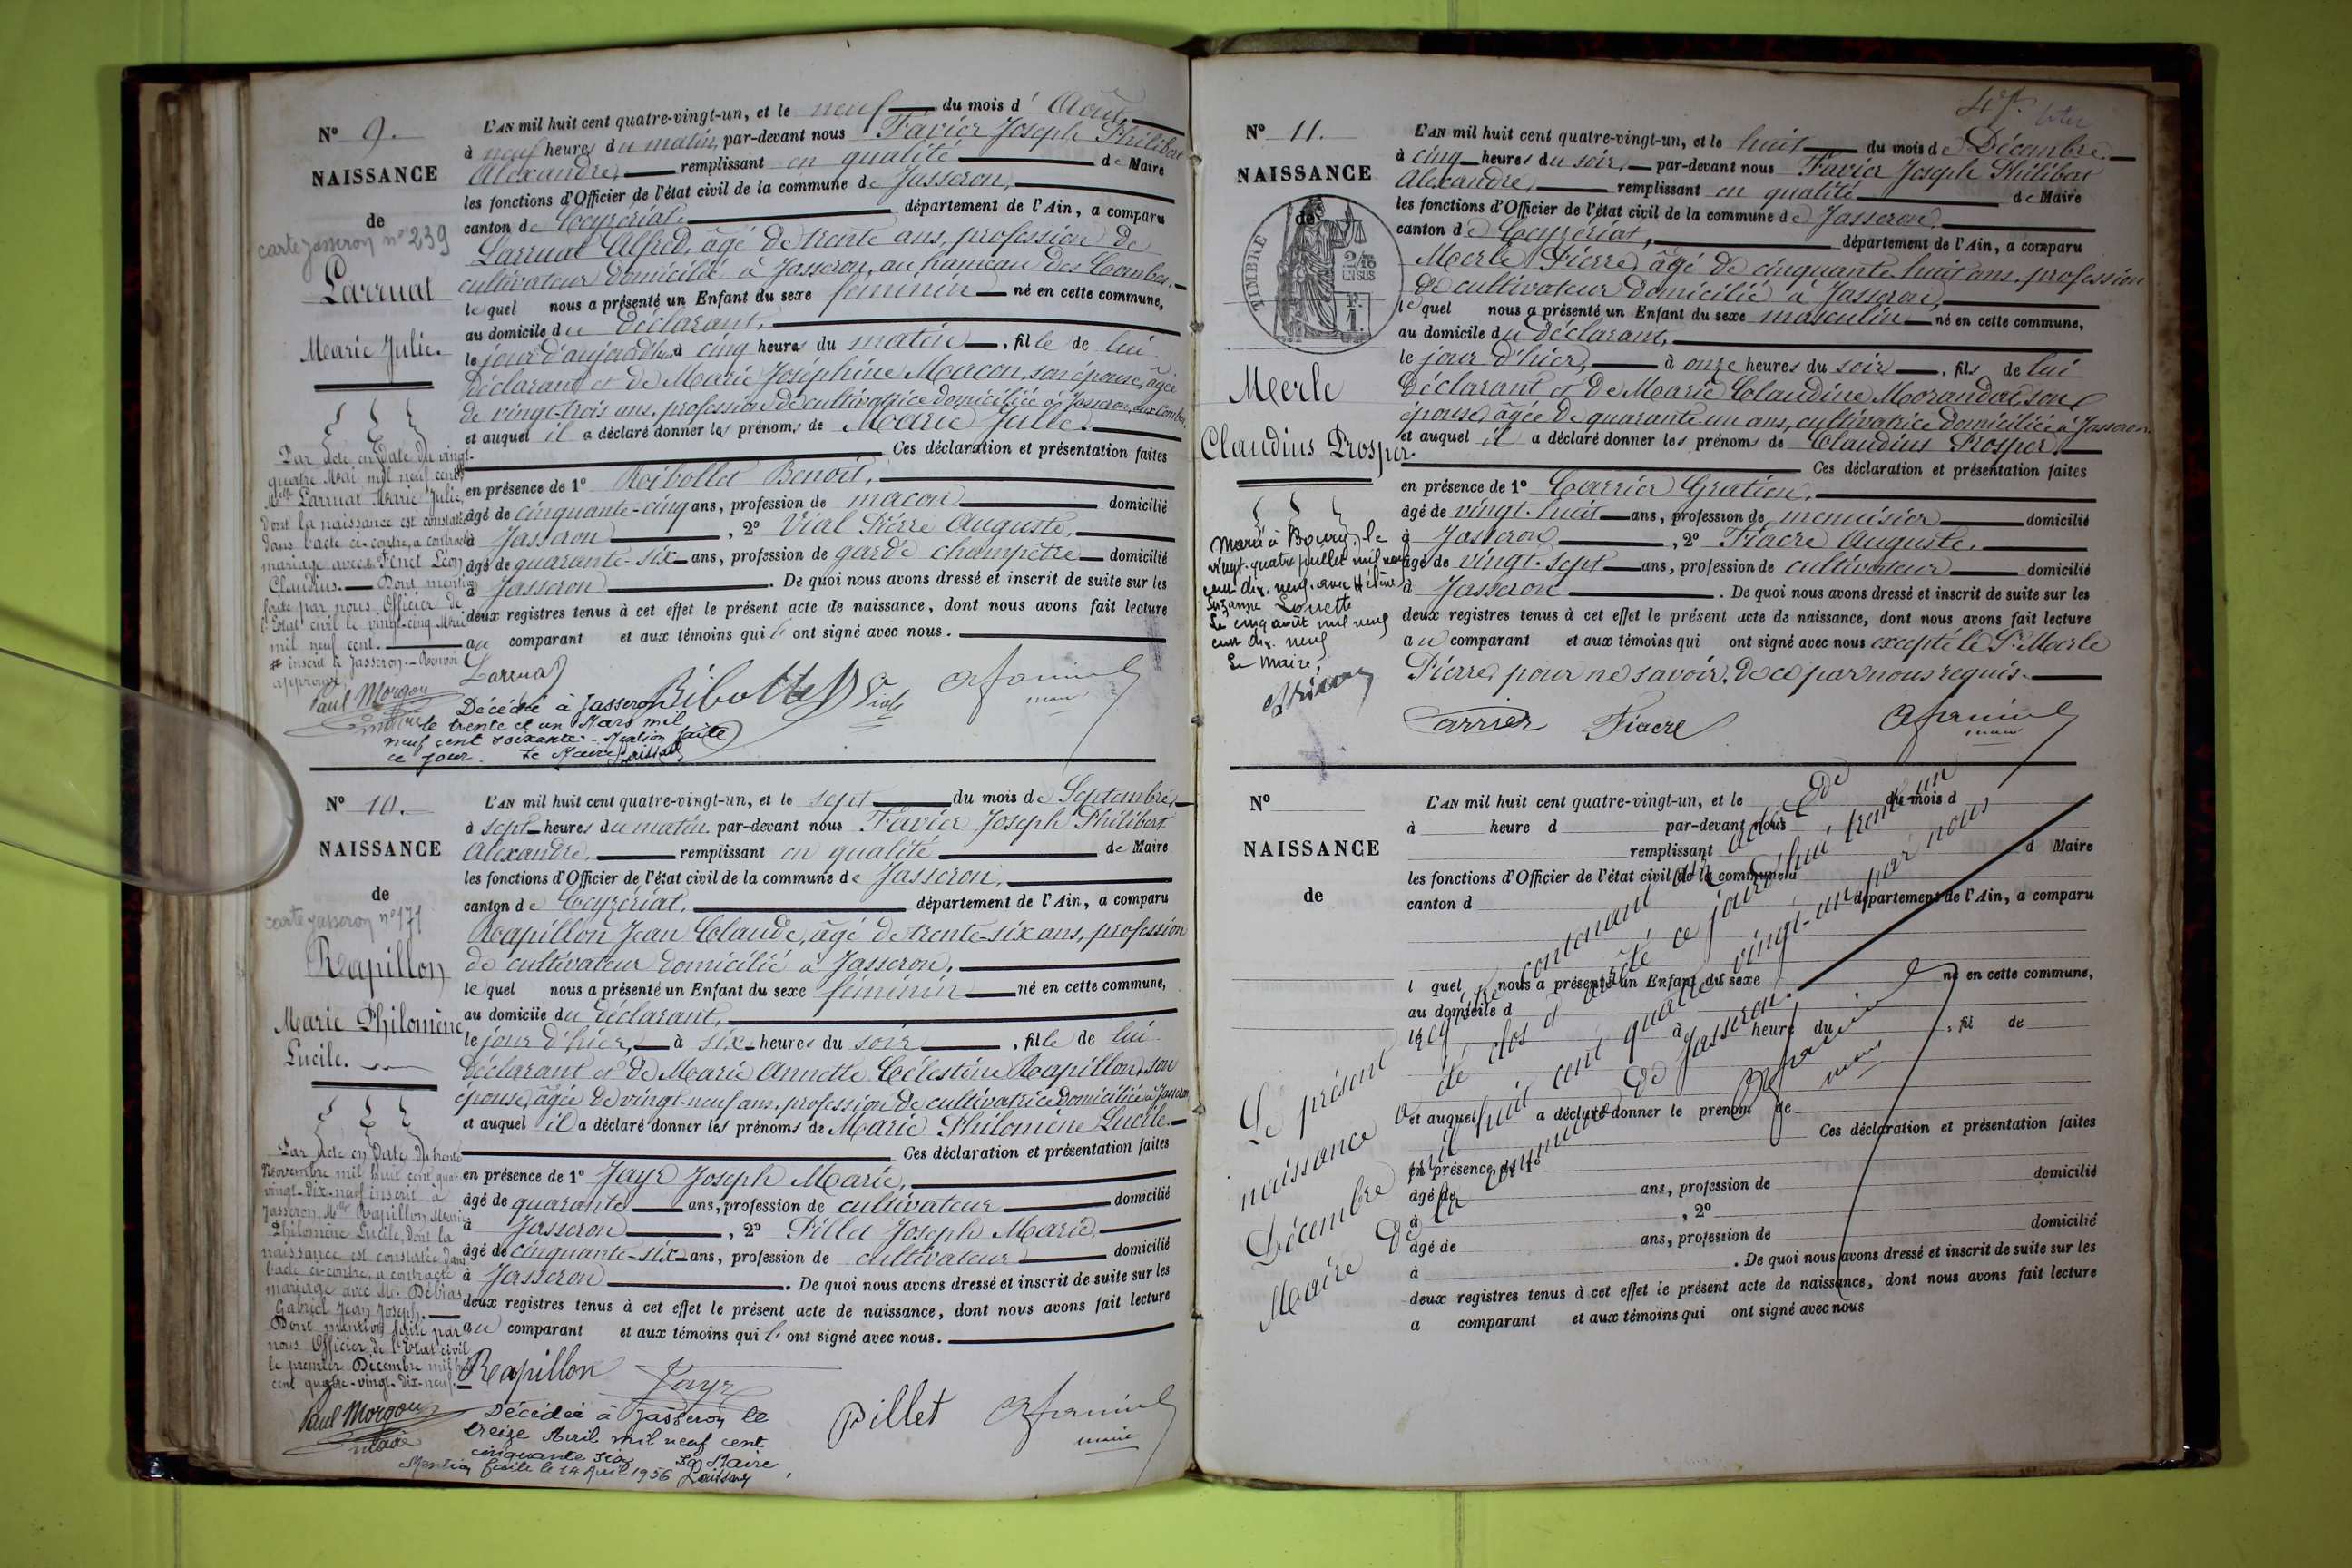 N° 9.
NAISSANCE
de
carte Jasseron n° 239
Larruat
Marie Julie.
L'AN mil huit cent quatre-vingt-un, et le neuf du mois d'Août,
à neuf heures du matin, par-devant nous Favier Joseph Philibert
Alexandre, remplissant en qualité de Maire
les fonctions d'Officier de l'état civil de la commune de Jasseron,
canton de Ceyzériat, département de l'Ain, a comparu
Larruat Alfred, âgé de trente ans, profession de
cultivateur domicilié à Jasseron, au hameau des Combes,
lequel nous a présenté un Enfant du sexe féminin né en cette commune,
au domicile du déclarant,
le jour d'aujourd'hui à cinq heures du matin, fille de lui
déclarant et de Marie Joséphine Macon, son épouse, âgée
de vingt-trois ans, profession de cultivatrice domiciliée à Jasseron, aux Combes,
et auquel il a déclaré donner les prénoms de Marie Julie.
Ces déclaration et présentation faites
en présence de 1° Ribollet Benoit,
âgé de cinquante-cinq ans, profession de maçon domicilié
à Jasseron, 2° Vial Pierre Auguste,
âgé de quarante-six ans, profession de garde champêtre domicilié
à Jasseron. De quoi nous avons dressé et inscrit de suite sur les
deux registres tenus à cet effet le présent acte de naissance, dont nous avons fait lecture
au comparant et aux témoins qui ont signé avec nous.
Larruat Ribollet Vial maire
Par acte en date du vingt-
quatre Mai mil neuf cent #
Melle Larruat Marie Julie,
dont la naissance est constatée
dans l'acte ci-contre, a contracté
mariage avec M. Fenet Léon
Claudius. Dont mention
faite par nous Officier de
l'Etat civil le vingt-cinq Mai
mil neuf cent.
# inscrit à Jasseron. Renvoi
approuvé
Paul Morgon
maire
Décédée à Jasseron
le trente et un Mars mil
neuf cent soixante. Mention faite
ce jour. Le Maire
N° 10.
NAISSANCE
de
carte Jasseron n° 171
Rapillon
Marie Philomène
Lucile.
L'AN mil huit cent quatre-vingt-un, et le sept du mois de Septembre,
à sept heures du matin par-devant nous Favier Joseph Philibert
Alexandre, remplissant en qualité de Maire
les fonctions d'Officier de l'état civil de la commune de Jasseron,
canton de Ceyzériat, département de l'Ain, a comparu
Rapillon Jean Claude, âgé de trente-six ans, profession
de cultivateur domicilié à Jasseron,
lequel nous a présenté un Enfant du sexe féminin né en cette commune,
au domicile du déclarant,
le jour d'hier, à six heures du soir, fille de lui
déclarant et de Marie Annette Célestine Rapillon, son
épouse, âgée de vingt-neuf ans, profession de cultivatrice domiciliée à Jasseron
et auquel il a déclaré donner les prénoms de Marie Philomène Lucile.
Ces déclaration et présentation faites
en présence de 1° Jayr Joseph Marie,
âgé de quarante ans, profession de cultivateur domicilié
à Jasseron, 2° Pillet Joseph Marie,
âgé de cinquante-six ans, profession de cultivateur domicilié
à Jasseron. De quoi nous avons dressé et inscrit de suite sur les
deux registres tenus à cet effet le présent acte de naissance, dont nous avons fait lecture
au comparant et aux témoins qui ont signé avec nous.
Rapillon Jayr Pillet maire
Par acte en date du trente
Novembre mil huit cent quatre-
vingt-dix-neuf inscrit à
Jasseron, Melle Rapillon Marie
Philomène Lucile, dont la
naissance est constatée dans
l'acte ci-contre, a contracté
mariage avec M. Débias
Gabriel Jean Joseph.
Dont mention faite par
nous Officier de l'Etat civil
le premier Décembre mil huit
cent quatre-vingt-dix-neuf.
Paul Morgon
maire
Décédée à Jasseron le
treize Avril mil neuf cent
cinquante six
Mention faite le 14 Avril 1956 Le Maire,
N° 11.
NAISSANCE
de
TIMBRE
2/10
EN SUS
Merle
Claudius Prosper.
L'AN mil huit cent quatre-vingt-un, et le huit du mois de Décembre
à cinq heures du soir, par-devant nous Favier Joseph Philibert
Alexandre, remplissant en qualité de Maire
les fonctions d'Officier de l'état civil de la commune de Jasseron,
canton de Ceyzériat, département de l'Ain, a comparu
Merle Pierre, âgé de cinquante-huit ans, profession
de cultivateur domicilié à Jasseron,
lequel nous a présenté un Enfant du sexe masculin né en cette commune,
au domicile du déclarant,
le jour d'hier, à onze heures du soir, fils de lui
déclarant et de Marie Claudine Morandat, son
épouse, âgée de quarante-un ans, cultivatrice domiciliée à Jasseron,
et auquel il a déclaré donner les prénoms de Claudius Prosper.
Ces déclaration et présentation faites
en présence de 1° Carrier Gratien,
âgé de vingt-huit ans, profession de menuisier domicilié
à Jasseron, 2° Fiacre Auguste,
âgé de vingt-sept ans, profession de cultivateur domicilié
à Jasseron. De quoi nous avons dressé et inscrit de suite sur les
deux registres tenus à cet effet le présent acte de naissance, dont nous avons fait lecture
au comparant et aux témoins qui ont signé avec nous excepté le Sr Merle
Pierre, pour ne savoir, de ce par nous requis.
Carrier Fiacre maire
Marié à Bourg, le
vingt-quatre juillet mil neuf
cent dix-neuf avec Hélène
Suzanne Louette
Le cinq août mil neuf
cent dix-neuf
Le Maire,
N°
NAISSANCE
de
L'AN mil huit cent quatre-vingt-un, et le du mois d
à heure d par-devant nous
remplissant d Maire
les fonctions d'Officier de l'état civil de la commune d
canton d département de l'Ain, a comparu
l quel nous a présenté un Enfant du sexe né en cette commune,
au domicile d
le à heure du , fil de
et auquel a déclaré donner le prénom de
Ces déclaration et présentation faites
en présence de 1°
âgé de ans, profession de domicilié
à , 2°
âgé de ans, profession de domicilié
à . De quoi nous avons dressé et inscrit de suite sur les
deux registres tenus à cet effet le présent acte de naissance, dont nous avons fait lecture
a comparant et aux témoins qui ont signé avec nous
Le présent registre contenant onze actes de
naissance a été clos et arrêté ce jourd'hui trente-un
Décembre mil huit cent quatre-vingt-un par nous
Maire de la commune de Jasseron.
maire